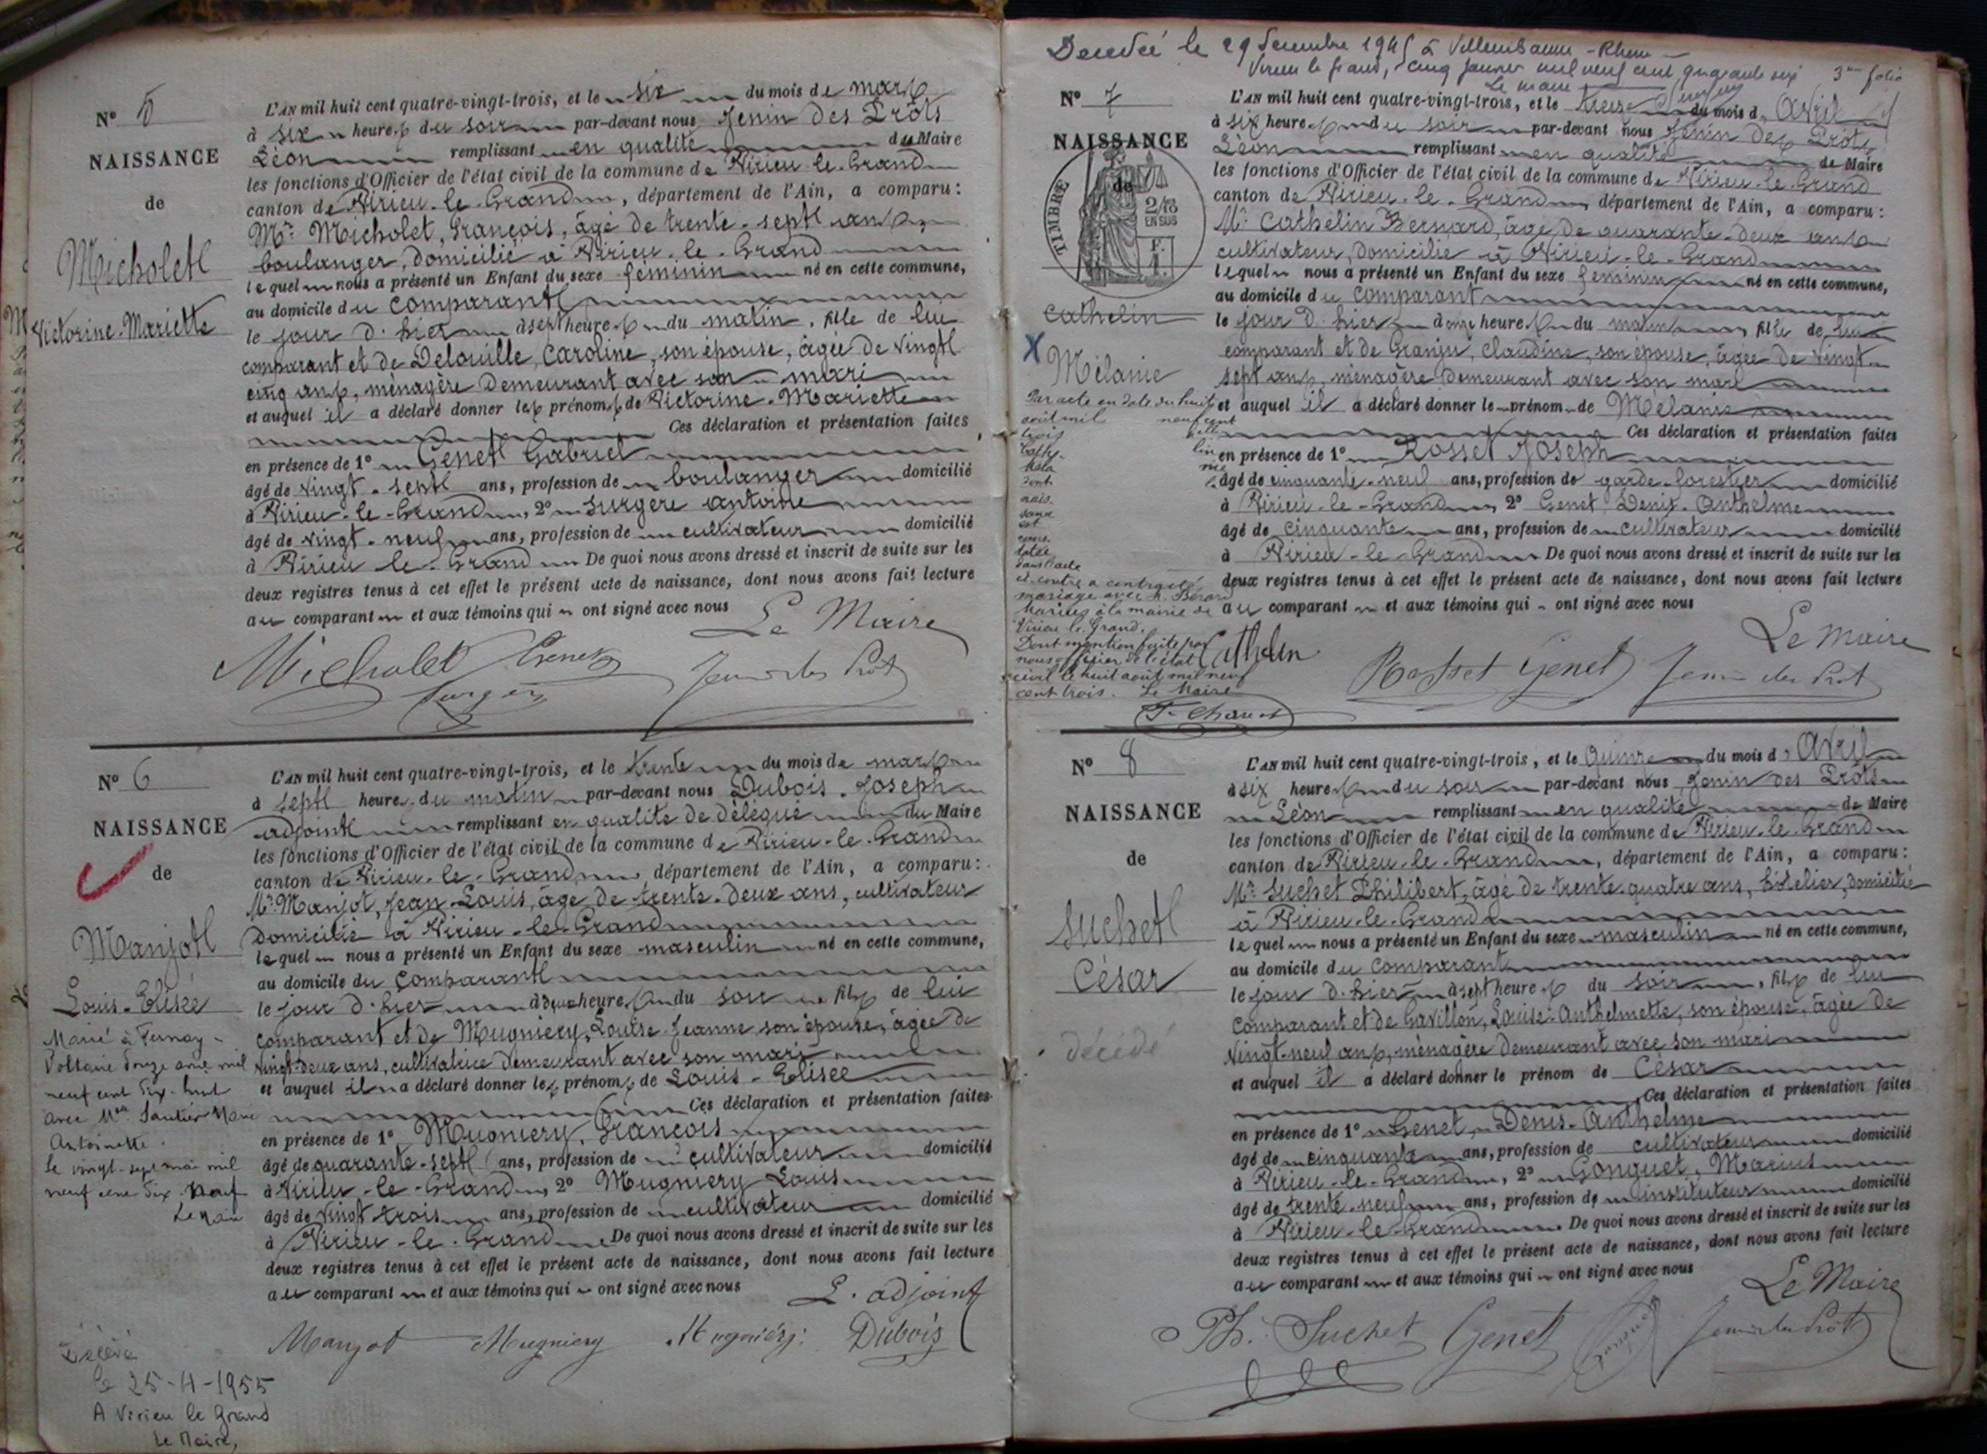 Nº 5
NAISSANCE
de
Micholet
Victorine-Mariette
L'AN mil huit cent quatre-vingt-trois, et le six du mois de mars
à six heures du soir par-devant nous Jenin des Prôts
Léon remplissant en qualité de Maire
les fonctions d'Officier de l'état civil de la commune de Virieu-le-Grand
canton de Virieu-le-Grand, département de l'Ain, a comparu:
Mr Micholet, François, âgé de trente-sept ans,
boulanger, domicilié à Virieu-le-Grand
lequel nous a présenté un Enfant du sexe féminin né en cette commune,
au domicile du comparant
le jour d'hier à sept heures du matin, fille de lui
comparant et de Delouille, Caroline, son épouse, âgée de vingt
cinq ans, ménagère demeurant avec son mari
et auquel il a déclaré donner les prénoms de Victorine-Mariette
Ces déclaration et présentation faites
en présence de 1º Genet Gabriel
âgé de vingt-sept ans, profession de boulanger domicilié
à Virieu-le-Grand, 2º Surgère antoine
âgé de vingt-neuf ans, profession de cultivateur domicilié
à Virieu-le-Grand De quoi nous avons dressé et inscrit de suite sur les
deux registres tenus à cet effet le présent acte de naissance, dont nous avons fait lecture
au comparant et aux témoins qui ont signé avec nous
Le Maire
Micholet Genet
Surgère Jenin des Prôt
Nº 6
NAISSANCE
de
Manjot
Louis-Elisée
Marié à Fernay-
Voltaire douze avril mil
neuf cent dix-huit
avec Mlle Sautier Marie
Antoinette.
Le vingt-sept mai mil
neuf cent dix-neuf
Le Maire
Décédé
le 25-4-1955
A Virieu le Grand
Le Maire,
L'AN mil huit cent quatre-vingt-trois, et le trente du mois de mars
à sept heures du matin par-devant nous Dubois Joseph
adjoint remplissant en qualité de délégué du Maire
les fonctions d'Officier de l'état civil de la commune de Virieu-le-Grand
canton de Virieu-le-Grand département de l'Ain, a comparu:
Mr Manjot, Jean-Louis, âgé de trente-deux ans, cultivateur
domicilié à Virieu-le-Grand
lequel nous a présenté un Enfant du sexe masculin né en cette commune,
au domicile du comparant
le jour d'hier à deux heures du soir fils de lui
comparant et de Mugniery, Louise Jeanne son épouse, âgée de
vingt-deux ans, cultivatrice demeurant avec son mari
et auquel il a déclaré donner les prénoms de Louis-Elisée
Ces déclaration et présentation faites
en présence de 1º Mugniery, François
âgé de quarante-sept ans, profession de cultivateur domicilié
à Virieu-le-Grand, 2º Mugniery Louis
âgé de vingt trois ans, profession de cultivateur domicilié
à Virieu-le-Grand De quoi nous avons dressé et inscrit de suite sur les
deux registres tenus à cet effet le présent acte de naissance, dont nous avons fait lecture
au comparant et aux témoins qui ont signé avec nous
L'adjoint
Manjot Mugniery Mugniéry Dubois
Décédée le 29 décembre 1945 à Villeurbanne - Rhône -
Virieu le Grand, cinq janvier mil neuf cent quarante six
Le maire
3me folio
Nº 7
NAISSANCE
de
TIMBRE
2/10
EN SUS
Cathelin
X Mélanie
Par acte en date du huit
août mil neuf cent
trois
elle
Cathelin
Méla
nie
dont
nais-
sance
est
cons-
tatée
dans l'acte
ci-contre a contracté
mariage avec M. Bérard
Marius à la mairie de
Virieu le Grand.
Dont mention faite par
nous officier de l'état
civil le huit août mil neuf
cent trois. Le Maire
L'AN mil huit cent quatre-vingt-trois, et le treize du mois d'avril
à six heures du soir par-devant nous Jenin des Prôts
Léon remplissant en qualité de Maire
les fonctions d'Officier de l'état civil de la commune de Virieu-le-Grand
canton de Virieu-le-Grand, département de l'Ain, a comparu:
Mr Cathelin Bernard, âgé de quarante-deux ans
cultivateur, domicilié à Virieu-le-Grand
lequel nous a présenté un Enfant du sexe féminin né en cette commune,
au domicile du comparant
le jour d'hier à onze heures du matin, fille de lui
comparant et de Granju, Claudine, son épouse, âgée de vingt-
sept ans, ménagère demeurant avec son mari
et auquel il a déclaré donner le prénom de Mélanie
Ces déclaration et présentation faites
en présence de 1º Rosset Joseph
âgé de cinquante-neuf ans, profession de garde-forestier domicilié
à Virieu-le-Grand, 2º Genet Denis-Anthelme
âgé de cinquante ans, profession de cultivateur domicilié
à Virieu-le-Grand De quoi nous avons dressé et inscrit de suite sur les
deux registres tenus à cet effet le présent acte de naissance, dont nous avons fait lecture
au comparant et aux témoins qui ont signé avec nous
Le Maire
Cathelin Rosset Genet Jenin des Prôt
Nº 8
NAISSANCE
de
Suchet
César
décédé
L'AN mil huit cent quatre-vingt-trois, et le quinze du mois d'avril
à six heures du soir par-devant nous Jenin des Prôts
Léon remplissant en qualité de Maire
les fonctions d'Officier de l'état civil de la commune de Virieu-le-Grand
canton de Virieu-le-Grand, département de l'Ain, a comparu:
Mr Suchet Philibert, âgé de trente-quatre ans, hôtelier, domicilié
à Virieu-le-Grand
lequel nous a présenté un Enfant du sexe masculin né en cette commune,
au domicile du comparant
le jour d'hier à sept heures du soir, fils de lui
comparant et de Gavillon, Louise-Anthelmette, son épouse, âgée de
vingt-neuf ans, ménagère demeurant avec son mari
et auquel il a déclaré donner le prénom de César
Ces déclaration et présentation faites
en présence de 1º Genet, Denis-Anthelme
âgé de cinquante ans, profession de cultivateur domicilié
à Virieu-le-Grand, 2º Gonguet, Marius
âgé de trente-neuf ans, profession de instituteur domicilié
à Virieu-le-Grand De quoi nous avons dressé et inscrit de suite sur les
deux registres tenus à cet effet le présent acte de naissance, dont nous avons fait lecture
au comparant et aux témoins qui ont signé avec nous
Le Maire
Ph. Suchet Genet Jenin des Prôt